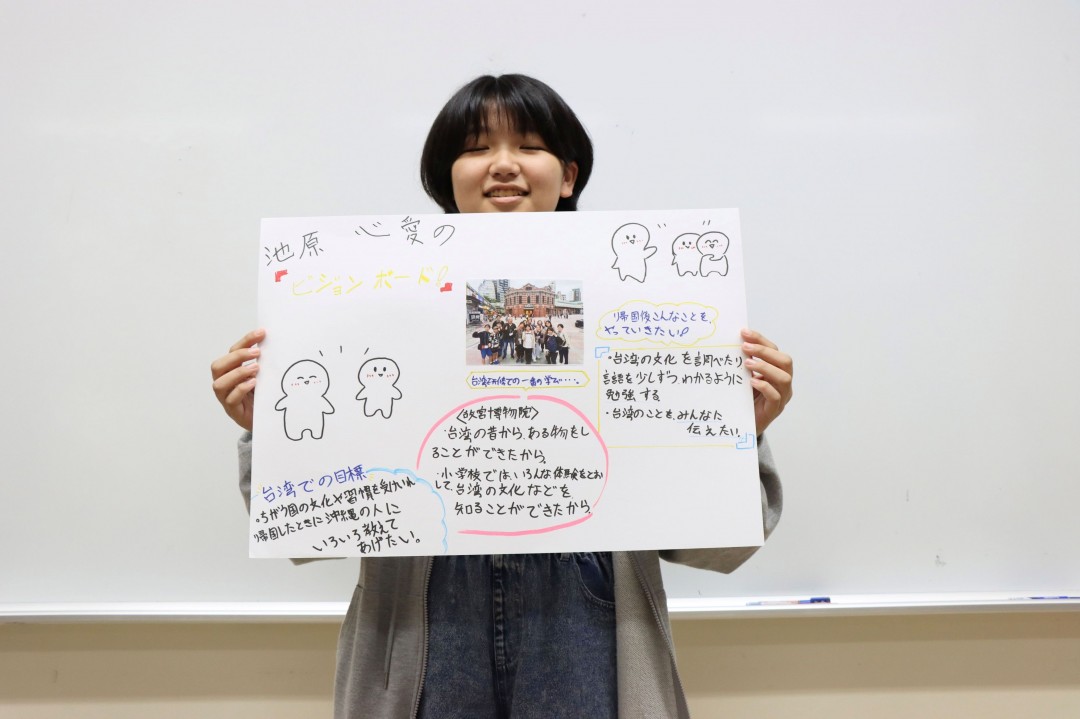 池原 心愛の
『ビジョンボード』
帰国後こんなことを、
やっていきたい!
・台湾の文化を調べたり
言語を少しずつわかるように
勉強する。
・台湾のことを、みんなに
伝えたい。
台湾研修での一番の学び・・・。
〈故宮博物院〉
・台湾の昔から、ある物をし
ることができたから。
・小学校ではいろんな体験をとお
して、台湾の文化などを
知ることができたから。
台湾での目標
・ちがう国の文化や習慣を受けいれ
帰国したときに沖縄の人に
いろいろ教えて
あげたい。